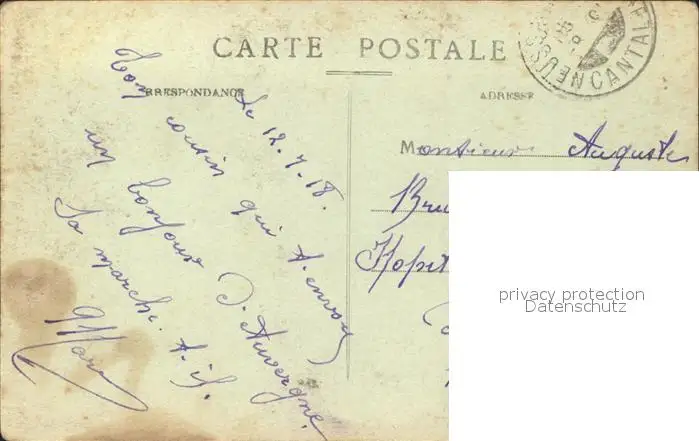 CARTE POSTALE
CORRESPONDANCE
ADRESSE
Le 12.7.18.
Ton cousin qui t'envoie
un bonjour d'Auvergne.
Sa marche. t-il.
Marc
Monsieur Auguste
Bru
Hopit
CANTAL
privacy protection
Datenschutz